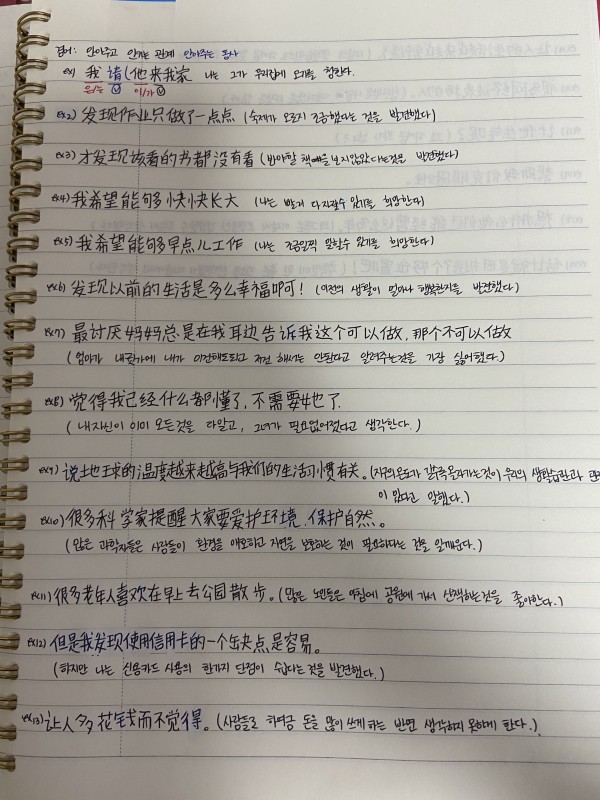 겸어: 안아주고 안기는 관계 안아주는 동사
ex1) 我请(他来我家 나는 그가 우리집에 오기를 청한다.
은/는 이/가
ex2) 发现作业只做了一点点 (숙제가 오로지 조금했다는 것을 발견했다)
ex3) 才发现该看的书都没有看 (봐야할 책을 보지않았다는것을 발견했다)
ex4) 我希望能够快快长大 (나는 빨리 다 자랄수 있기를 희망한다)
ex5) 我希望能够早点儿工作 (나는 조금일찍 일할수 있기를 희망한다)
ex6) 发现以前的生活是多么幸福啊可! (이전의 생활이 얼마나 행복한지를 발견했다)
ex7) 最讨厌妈妈总是在我耳边告诉我这个可以做, 那个不可以做
(엄마가 내 귓가에 내가 이건해도되고 저건 해서는 안된다고 알려주는것을 가장 싫어했다.)
ex8) 觉得我已经什么都懂了, 不需要她了.
(내 자신이 이미 모든것을 다알고, 그녀가 필요없어졌다고 생각한다.)
ex9) 说地球的温度越来越高与我们的生活习惯有关。(지구의온도가 갈수록올라가는것이 우리의 생활습관과 관
이 있다고 말했다.)
ex10) 很多科学家提醒大家要爱护环境, 保护自然。
(많은 과학자들은 사람들이 환경을 애호하고 자연을 보호하는 것이 필요하다는 것을 일깨운다.)
ex11) 很多老年人喜欢在早上去公园散步。(많은 노인들은 아침에 공원에 가서 산책하는것을 좋아한다.)
ex12) 但是我发现使用信用卡的一个缺点是容易。
(하지만 나는 신용카드 사용의 한가지 단점이 쉽다는 것을 발견했다.)
ex13) 让人多花钱而不觉得。(사람들로 하여금 돈을 많이 쓰게 하는 반면 생각하지 못하게 한다.)